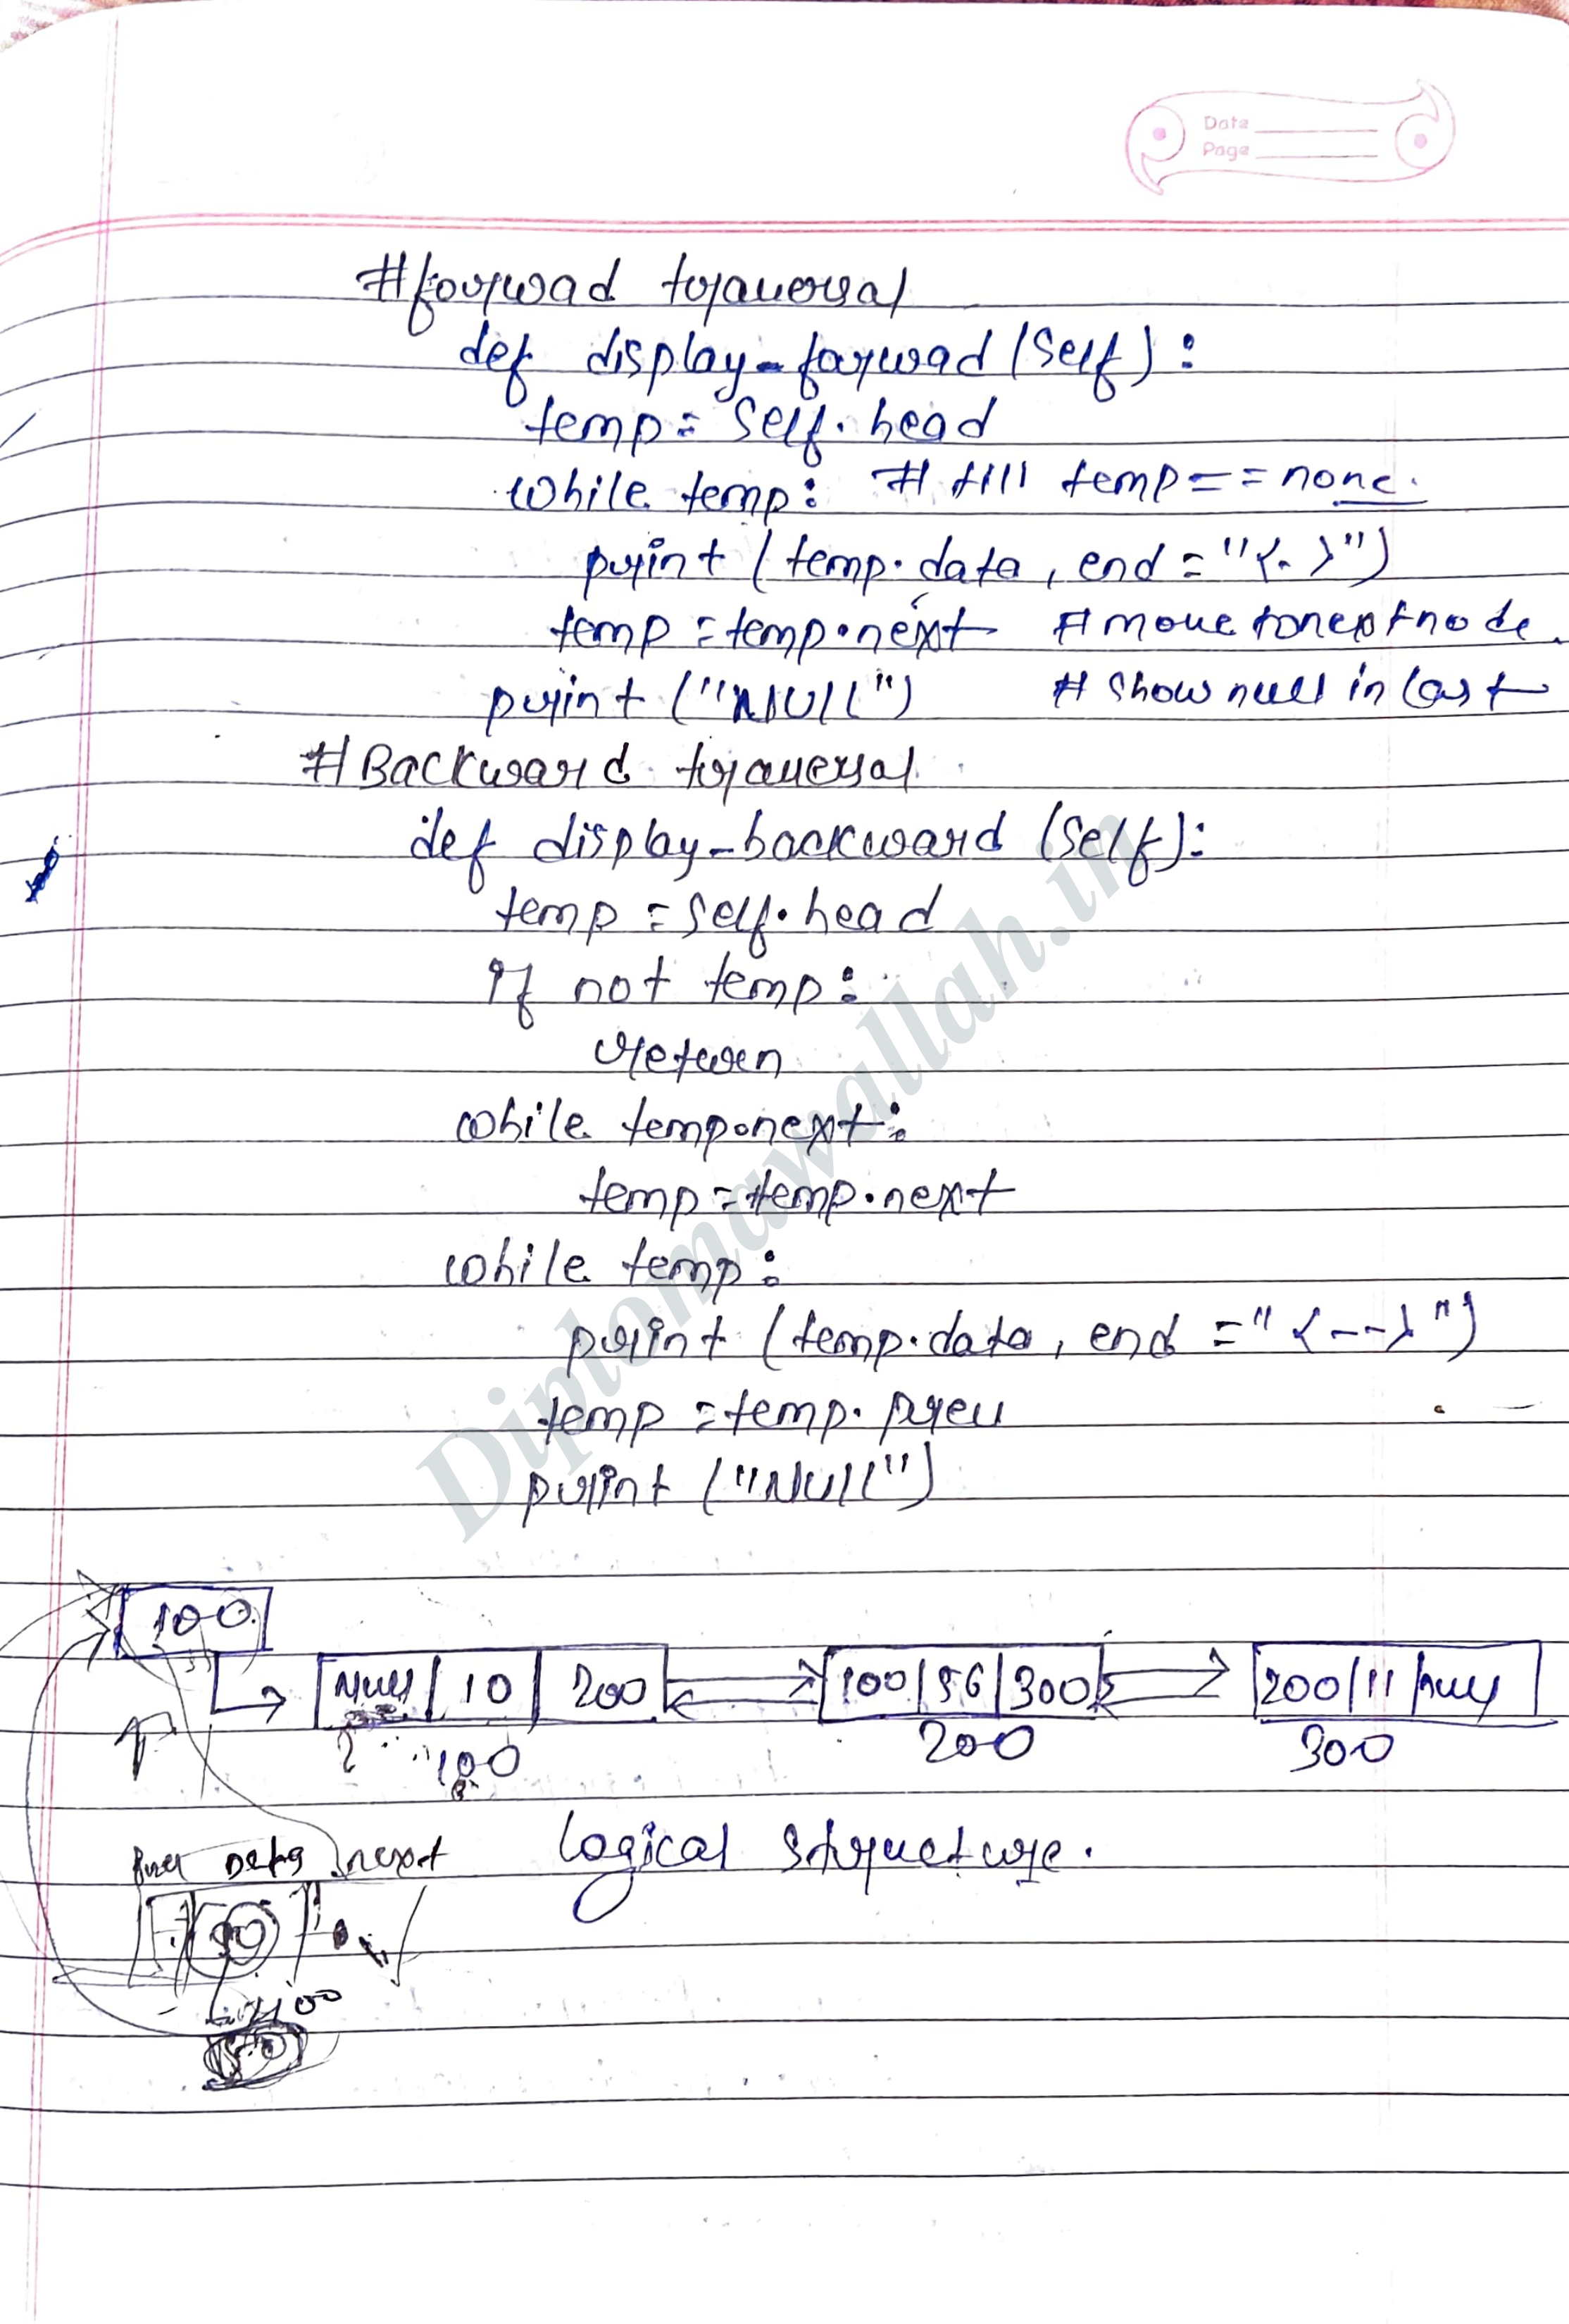 Date
Page
#forwad traversal
def display_forwad(self):
temp = self.head
while temp: # till temp == none.
print (temp.data, end = "<->")
temp = temp.next # move to next node.
print ("NUll") # show null in last
#Backward traversal
def display_backward (self):
temp = self.head
if not temp:
return
while temp.next:
temp = temp.next
while temp:
print (temp.data, end = "<-->")
temp = temp.prev
print ("NUll")
100
Null 10 200 100 56 300 200 11 null
100 200 300
Data next Logical structure.
Diplomawallah.in